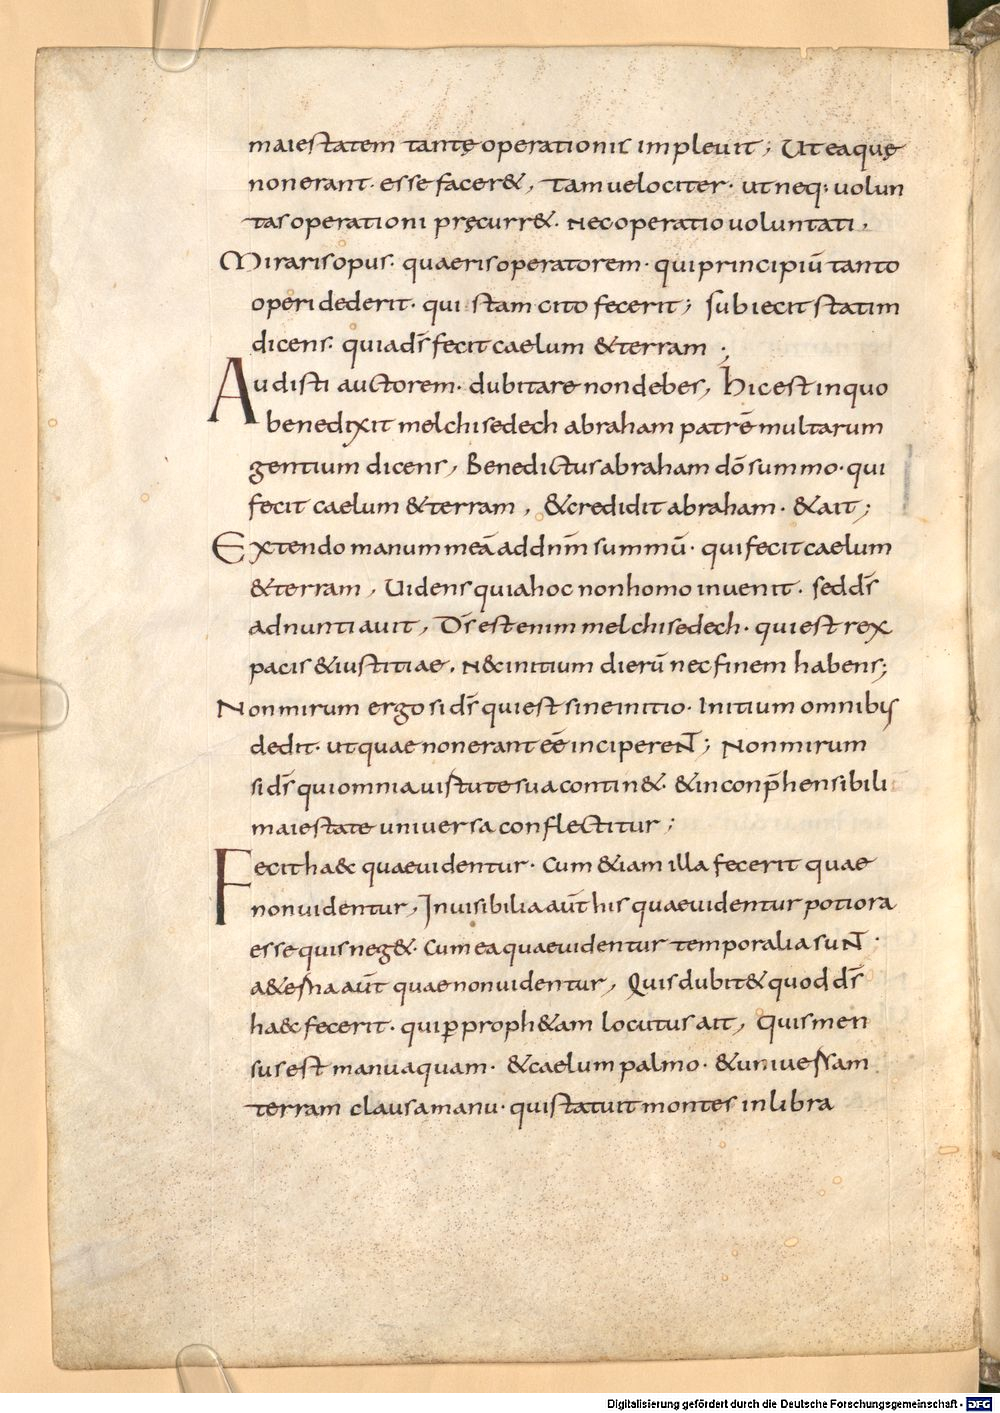 maiestatem tantę operationis impleuit; Ut eaquę
non erant· esse facer&, tam uelociter· ut neq: uolun
tas operationi pręcurr&· nec operatio uoluntati,
Miraris opus· quaeris operatorem· qui principiū tanto
operi dederit· quis tam cito fecerit; subiecit statim
dicens· quia d̄s fecit caelum & terram ;
Audisti auctorem· dubitare non debes, hic est in quo
benedixit melchisedech abraham patrē multarum
gentium dicens, Benedictus abraham dō summo· qui
fecit caelum & terram, & credidit abraham· & ait;
Extendo manum meā ad dn̄m summū· qui fecit caelum
& terram, Uidens quia hoc non homo inuenit· sed d̄s
adnuntiauit, D̄s est enim melchisedech· qui est rex
pacis & iustitiae, n& initium dierū nec finem habens;
Non mirum ergo si d̄s qui est sine initio· Initium omnibus
dedit· ut quae non erant eē inciperent; Non mirum
si d̄s qui omnia uirtute sua contin&· & inconp̄hensibili
maiestate uniuersa conflectitur;
Fecit haec quae uidentur· Cum &iam illa fecerit quae
non uidentur, Inuisibilia aūt his quae uidentur potiora
esse quis neg&· Cum ea quae uidentur temporalia sunt·
a&erna aūt quae non uidentur, Quis dubit& quod d̄s
haec fecerit· qui ꝑ proph&am locutus ait, Quis men
sus est manu aquam· & caelum palmo· & uniuersam
terram clausa manu· quis tatuit montes in libra
Digitalisierung gefördert durch die Deutsche Forschungsgemeinschaft - DFG